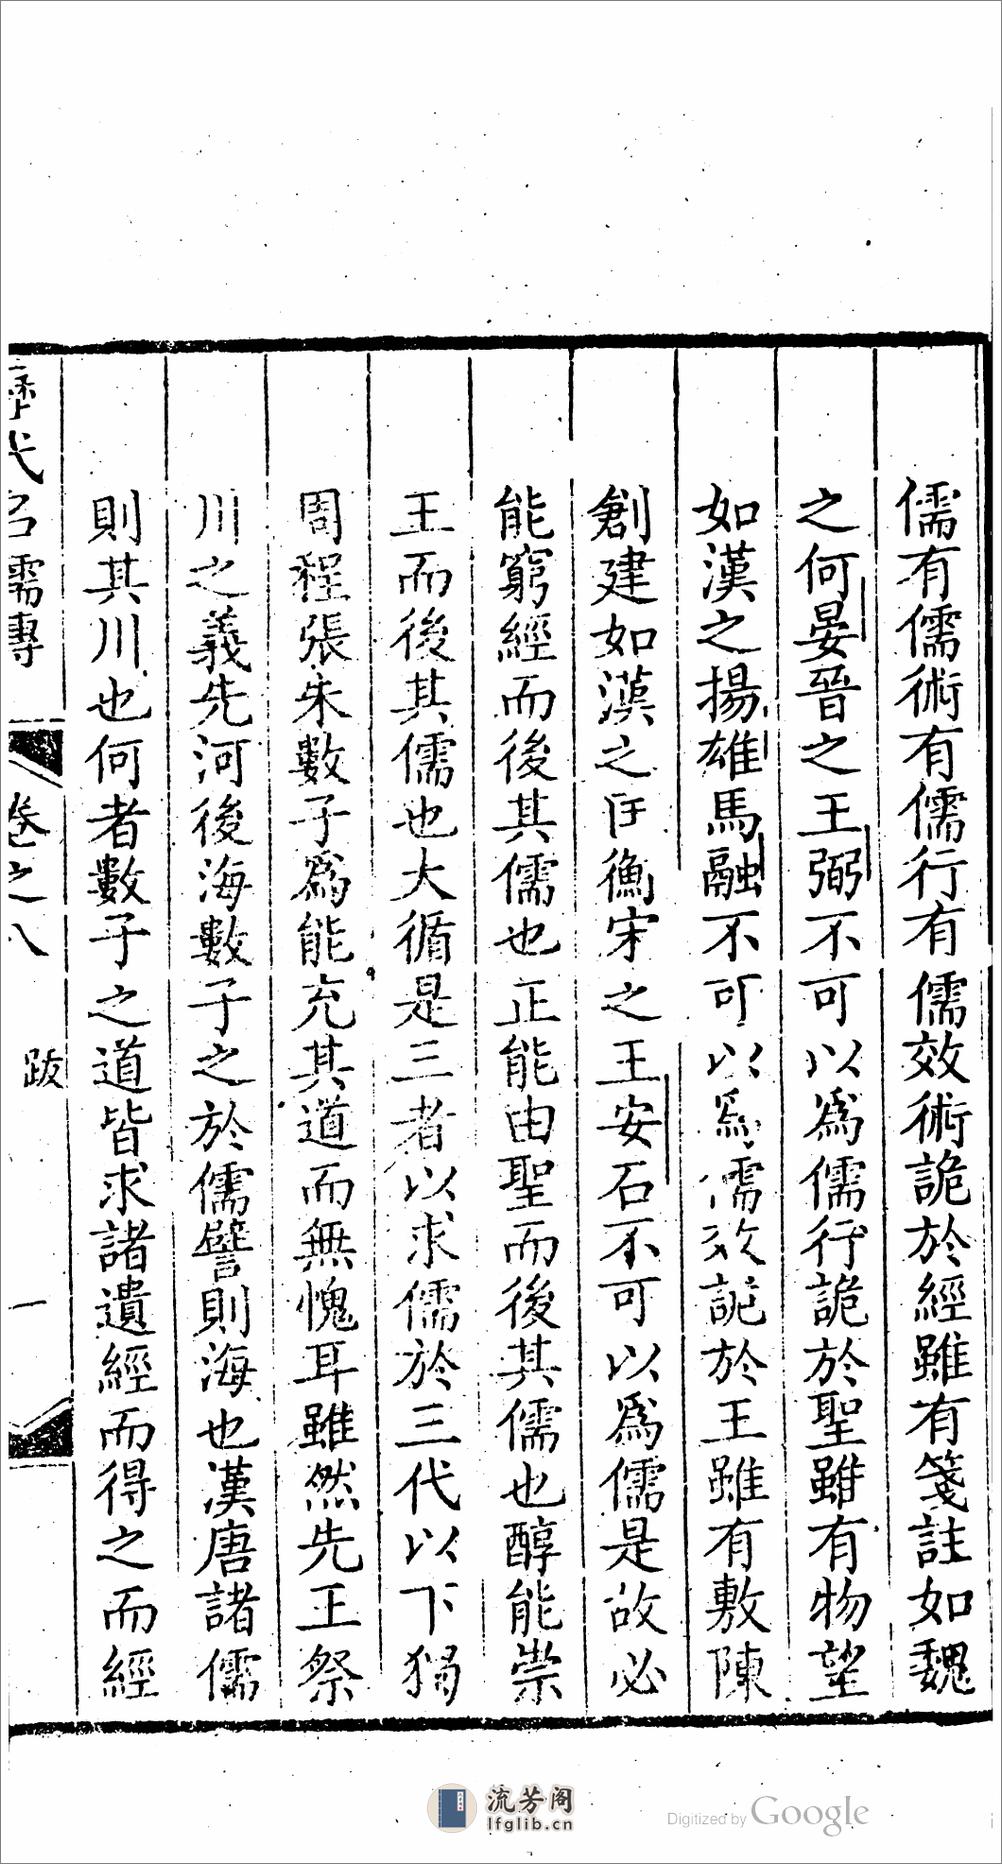 儒有儒術有儒行有儒效術詭於經雖有箋註如魏
之何晏晉之王弼不可以爲儒行詭於聖雖有物望
如漢之揚雄馬融不可以爲儒效詭於王雖有敷陳
創建如漢之匡衡宋之王安石不可以爲儒是故必
能窮經而後其儒也正能由聖而後其儒也醇能崇
王而後其儒也大循是三者以求儒於三代以下獨
周程張朱數子爲能充其道而無愧耳雖然先王祭
川之義先河後海數子之於儒譬則海也漢唐諸儒
則其川也何者數子之道皆求諸遺經而得之而經
歷代名儒傳 卷之八 跋 一
流芳阁
lfglib.cn
Digitized by Google